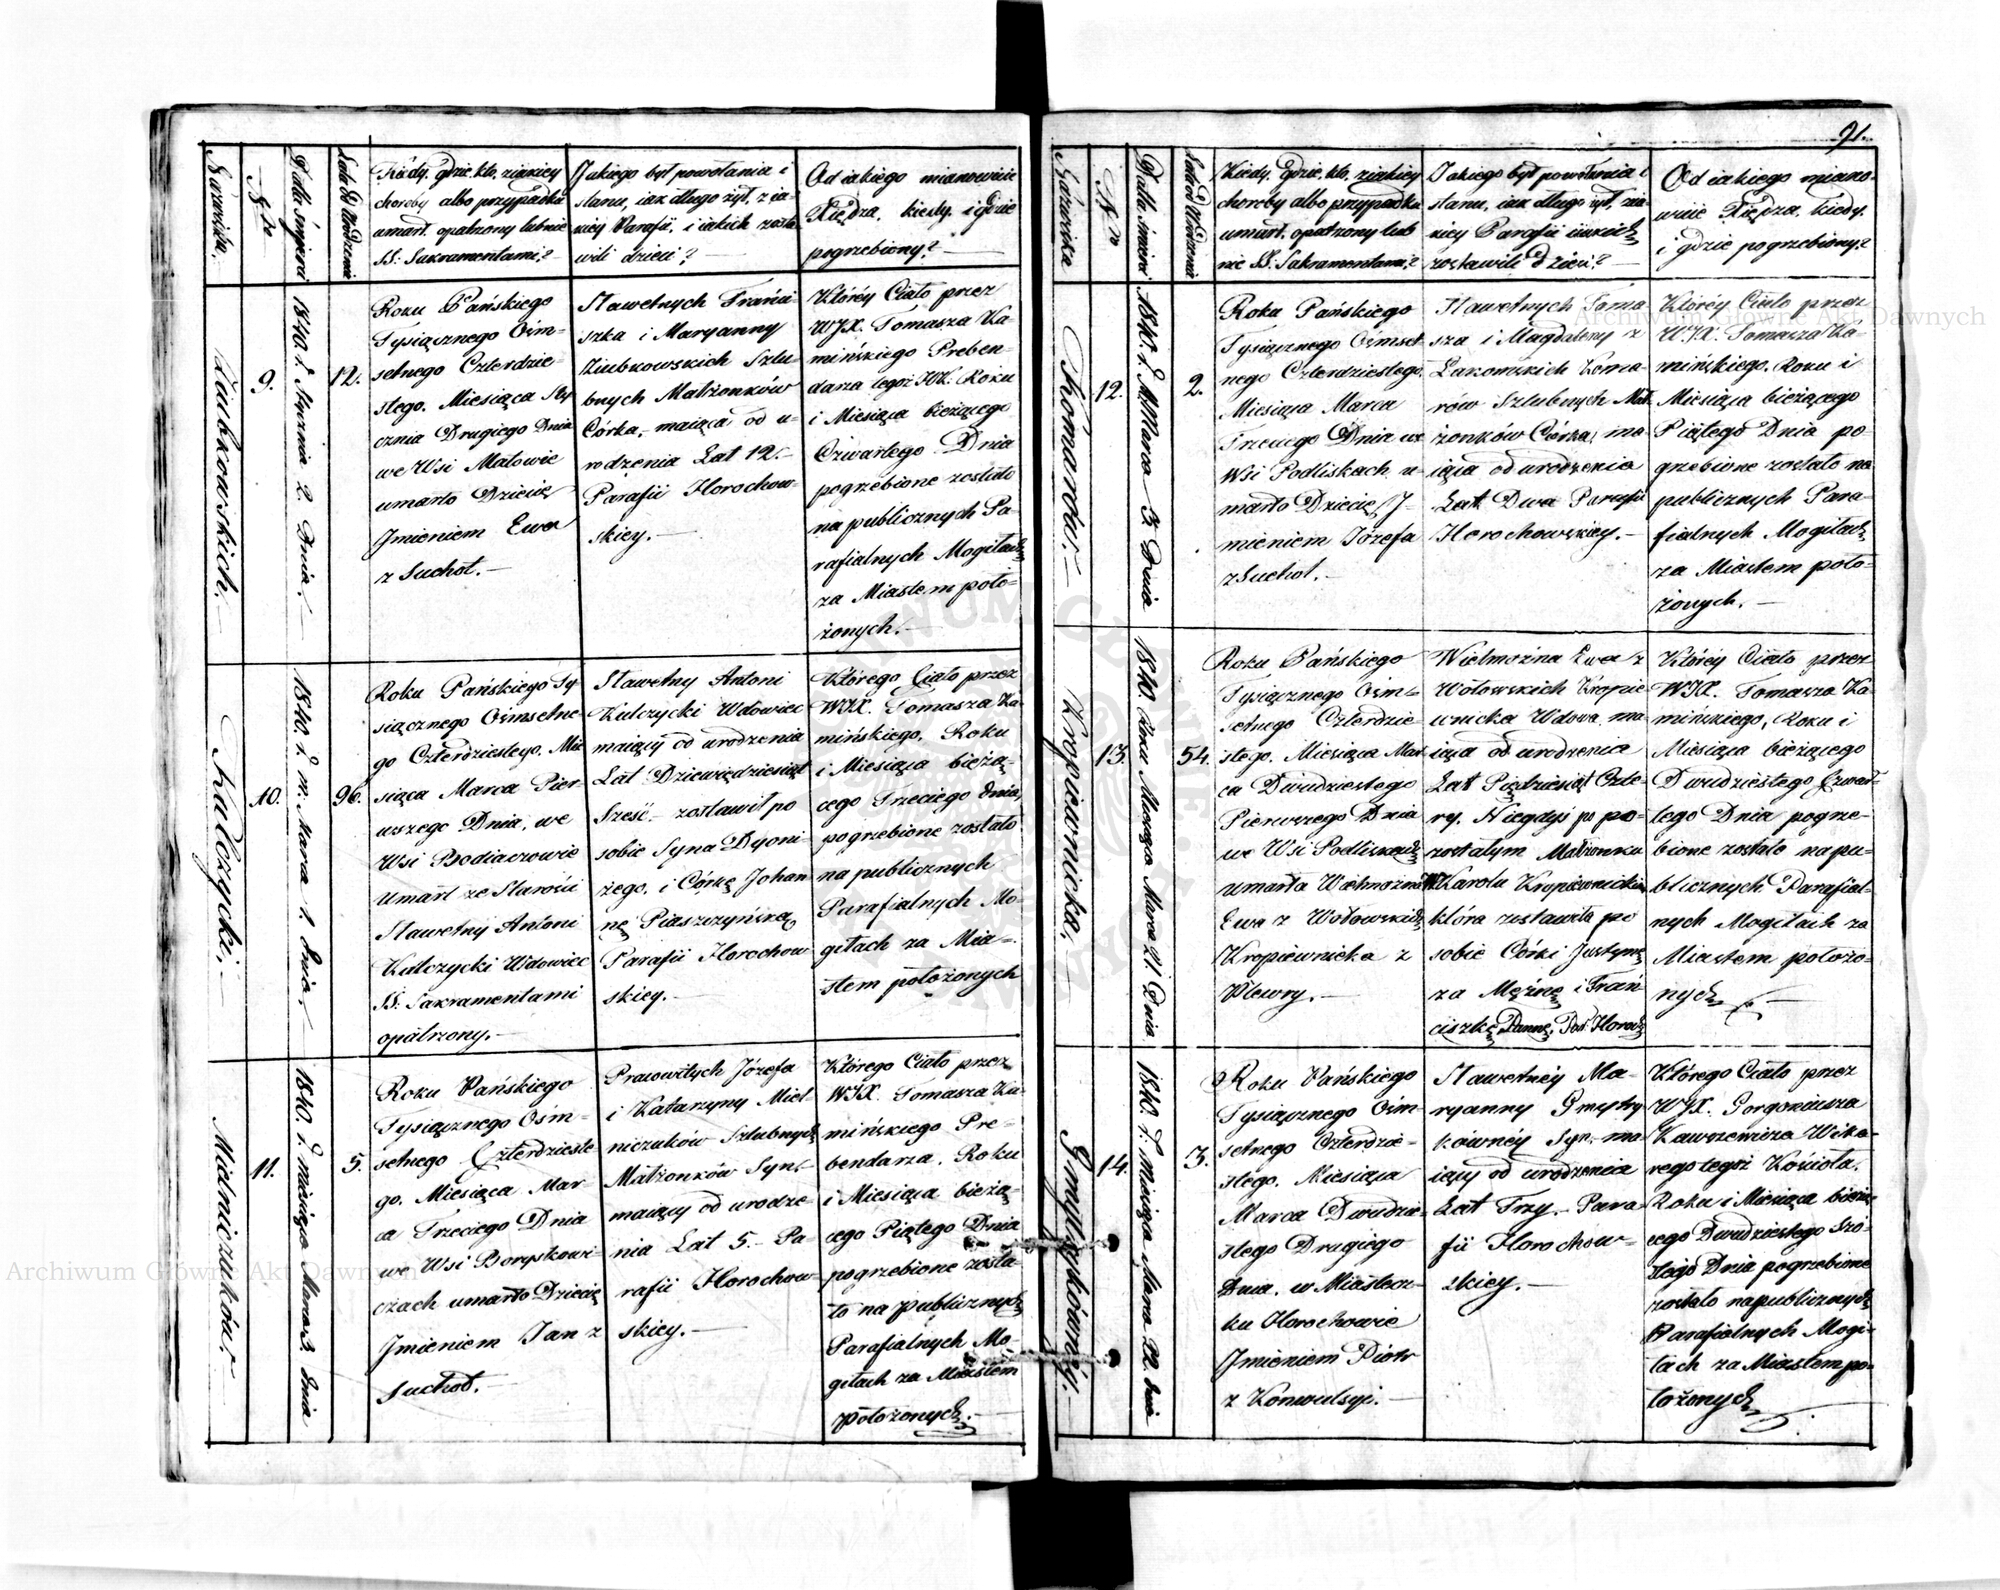 91.
Nazwiska.
Nro
Data śmierci
Lata Od Urodzenia
Kiedy, gdzie, kto, ziakiey
choroby albo przypadku
umarł. opatrzony lub nie
SS: Sakramentami?
Jakiego był powołania i
stanu, iak długo żył, z ia-
kiey Parafii, i iakich zosta-
wili dzieci?
Od iakiego mianowicie
Xiędza, kiedy, i gdzie
pogrzebiony?
Ziubkowskich.
9.
1840. r. Stycznia 2. Dnia.
12.
Roku Pańskiego
Tysiącznego Ośm-
setnego Czterdzie-
stego. Miesiąca Sty
cznia Drugiego Dnia
we Wsi
umarło Dziecie
Jmieniem Ewa
z Suchot.
Sławetnych Frańci-
szka i Maryanny
Ziubkowskich Szlu-
bnych Małżonków
Córka, maiąca od u-
rodzenia Lat 12.
Parafii Horochow-
skiey.
Któréy Ciało przez
WJX. Tomasza Ka-
mińskiego Preben-
darza tegoż Koł. Roku
i Miesiąca bieżącego
Czwartego Dnia
pogrzebione zostało
na publicznych Pa-
rafialnych Mogiłach
za Miastem poło-
żonych.
Kulczycki.
10.
1840. r. m. Marca 1. Dnia.
96.
Roku Pańskiego Ty
siącznego Ośmsetne-
go Czterdziestego. Mie
siąca Marca Pier-
wszego Dnia, we
Wsi
umarł ze Starości
Sławetny Antoni
Kulczycki Wdowiec
SS. Sakramentami
opatrzony.
Sławetny Antoni
Kulczycki Wdowiec
maiący od urodzenia
Lat Dziewięćdziesiąt
Sześć. zostawił po
sobie Syna Dyoni-
zego, i Córkę Johan
nę Piaszczyńską
Parafii Horochow
skiey.
Którego Ciało przez
WJX. Tomasza Ka-
mińskiego, Roku
i Miesiąca bieżą-
cego Trzeciego Dnia,
pogrzebione zostało
na publicznych
Parafialnych Mo-
giłach za Mia-
stem położonych
Mielniczuków.
11.
1840. r. miesiąca Marca 3. Dnia
5.
Roku Pańskiego
Tysiącznego Ośm-
setnego Czterdzieste
go. Miesiąca Mar-
ca Trzeciego Dnia
we Wsi Boryskowi-
czach umarło Dziecie
Jmieniem Jan z
Suchot.
Pracowitych Józefa
i Katarzyny Miel-
niczuków Szlubnych
Małżonków Syn
maiący od urodze
nia Lat 5. Pa
rafii Horochow-
skiey.
Którego Ciało przez
WJX. Tomasza Ka-
mińskiego Pre-
bendarza. Roku
i Miesiąca bieżą-
cego Piątego Dnia
pogrzebione zosta-
ło na publicznych
Parafialnych Mo-
giłach za Miastem
położonych.
Nazwiska
Nro
Data śmierci
Lata od Urodzenia
Kiedy, gdzie, kto, ziakiey
choroby albo przypadku
umarł. opatrzony lub
nie SS. Sakramentami?
Jakiego był powołania i
stanu, iak długo żył, zia-
kiey Parafii iiakich
zostawili Dzieci?
Od iakiego miano-
wicie Xiędza, kiedy,
i gdzie pogrzebiony?
Komarów.
12.
1840. r. Marca 3 Dnia
2.
Roku Pańskiego
Tysiącznego Ośmset
nego Czterdziestego.
Miesiąca Marca
Trzeciego Dnia we
Wsi Podliskach u-
marło Dziecie J-
mieniem Józefa
z Suchot.
Sławetnych Toma
sza i Magdaleny z
Łakomskich Koma-
rów Szlubnych Mał-
żonków Córka, ma-
iąca od urodzenia
Lat Dwa Parafii
Horochowskiey.
Któréy Ciało przez
WJX. Tomasza Ka-
mińskiego. Roku i
Miesiąca bieżącego
Piątego Dnia po-
grzebione zostało na
publicznych Para-
fialnych Mogiłach
za Miastem poło-
żonych.
Kropiewnicka.
13.
1840 Roku Miesiąca Marca 21 Dnia
54.
Roku Pańskiego
Tysiącznego Ośm-
setnego Czterdzie
stego. Miesiąca Mar
ca Dwudziestego
Pierwszego Dnia
we Wsi Podliskach
umarła Wielmożna
Ewa z Wołowskich
Kropiewnicka z
Plewry.
Wielmożna Ewa z
Wołowskich Kropie
wnicka Wdowa ma
iąca od urodzenia
Lat Pięćdziesiąt Czte
ry. Niegdyś po po-
zostałym Małżonku
W. Karola Kropiewnickim
która zostawiła po
sobie Córki Justynę
za Mężne i Frań-
ciszkę Pannę. Par. Horoch
Któréy Ciało przez
WJX. Tomasza Ka-
mińskiego, Roku i
Miesiąca bieżącego
Dwudziestego Czwar-
tego Dnia pogrze-
bione zostało na pu-
blicznych Parafial-
nych Mogiłach za
Miastem położo-
nych
Gmytrykówney.
14.
1840. r. Miesiąca Marca 22. Dnia
3.
Roku Pańskiego
Tysiącznego Ośm-
setnego Czterdzie-
stego. Miesiąca
Marca Dwudzie-
stego Drugiego
Dnia. w Miastecz-
ku Horochowie
Jmieniem Piotr
z Konwulsyi.
Sławetnéy Ma-
ryanny Gmytry
kównéy Syn, ma
iący od urodzenia
Lat Trzy. Para
fii Horochow-
skiey.
Którego Ciało przez
WJX. Gorgoniusza
Kawszewicza Wika-
rego tegoż Kościoła.
Roku i Miesiąca bieżą-
cego Dwudziestego Szó-
stego Dnia pogrzebione
zostało na publicznych
Parafialnych Mogi-
łach za Miastem po-
łożonych
Archiwum Główne Akt Dawnych
Archiwum Główne Akt Dawnych